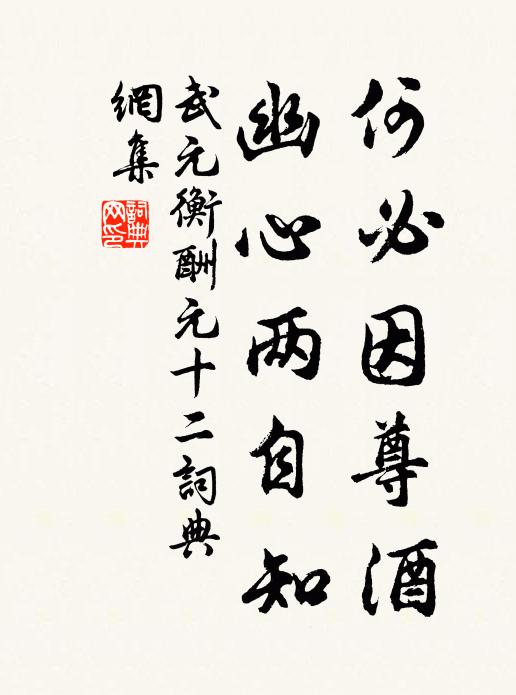 何必因尊酒
幽心两自知
武元衡酬元十二詞典
網集
詞典
网印